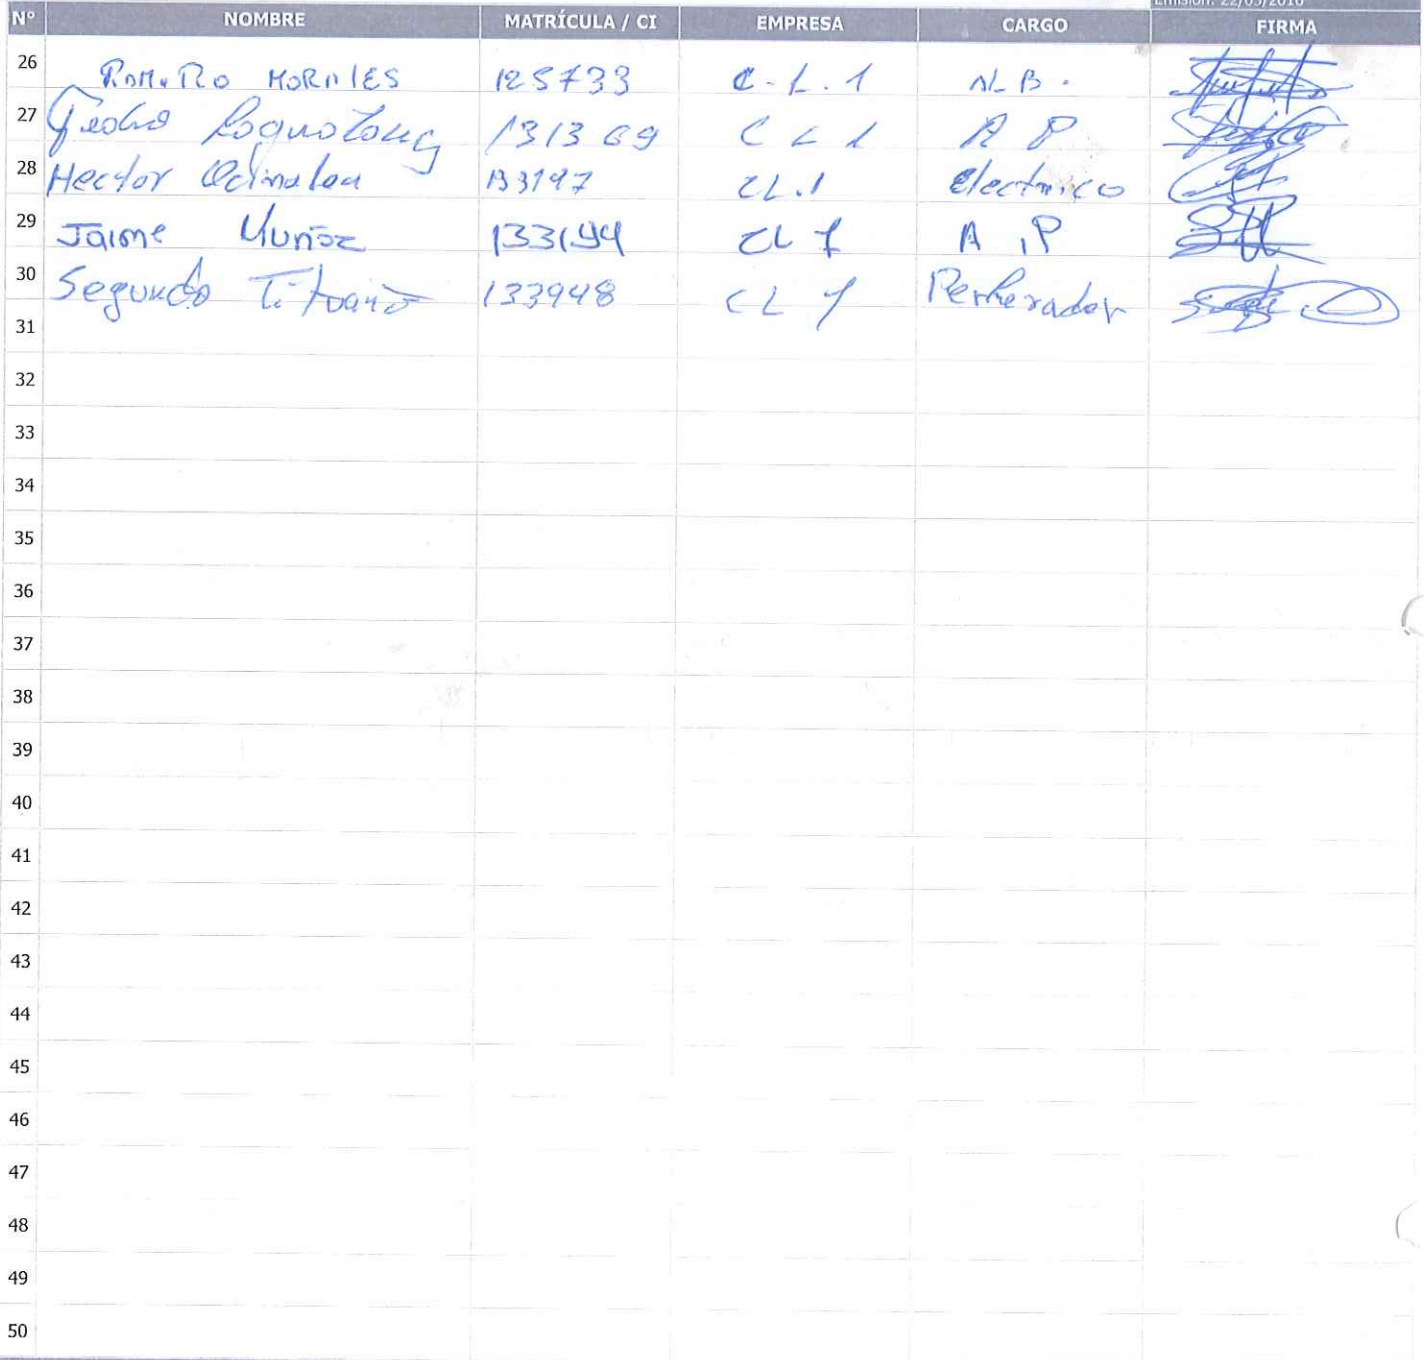 Emisión: 22/09/2016
N° NOMBRE MATRÍCULA / CI EMPRESA CARGO FIRMA
26 RAMIRO MORALES 125733 C.L.1
27 Pedro 131369 C L 1 A P
28 Hector 133197 CL.1 electrico
29 Jaime Muñoz 133194 CL 1 A.P
30 Segundo 133948 CL 1
31
32
33
34
35
36
37
38
39
40
41
42
43
44
45
46
47
48
49
50